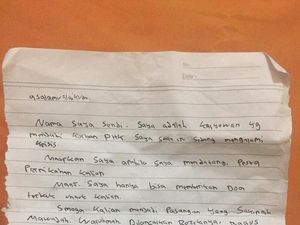 No:
Date:
asalamualaikum.
Nama saya Sendi. saya adalah karyawan yg
menjadi korban PHK. saya saat ini sedang mengalami
krisis
Maafkan saya apabila saya mendatangi Pesta
Pernikahan kalian
Maaf. saya hanya bisa memberikan Doa
terbaik untuk kalian.
Semoga kalian menjadi Pasangan yang Sakinah
Mawadah, Warohmah Dilancarkan Rezekinya,